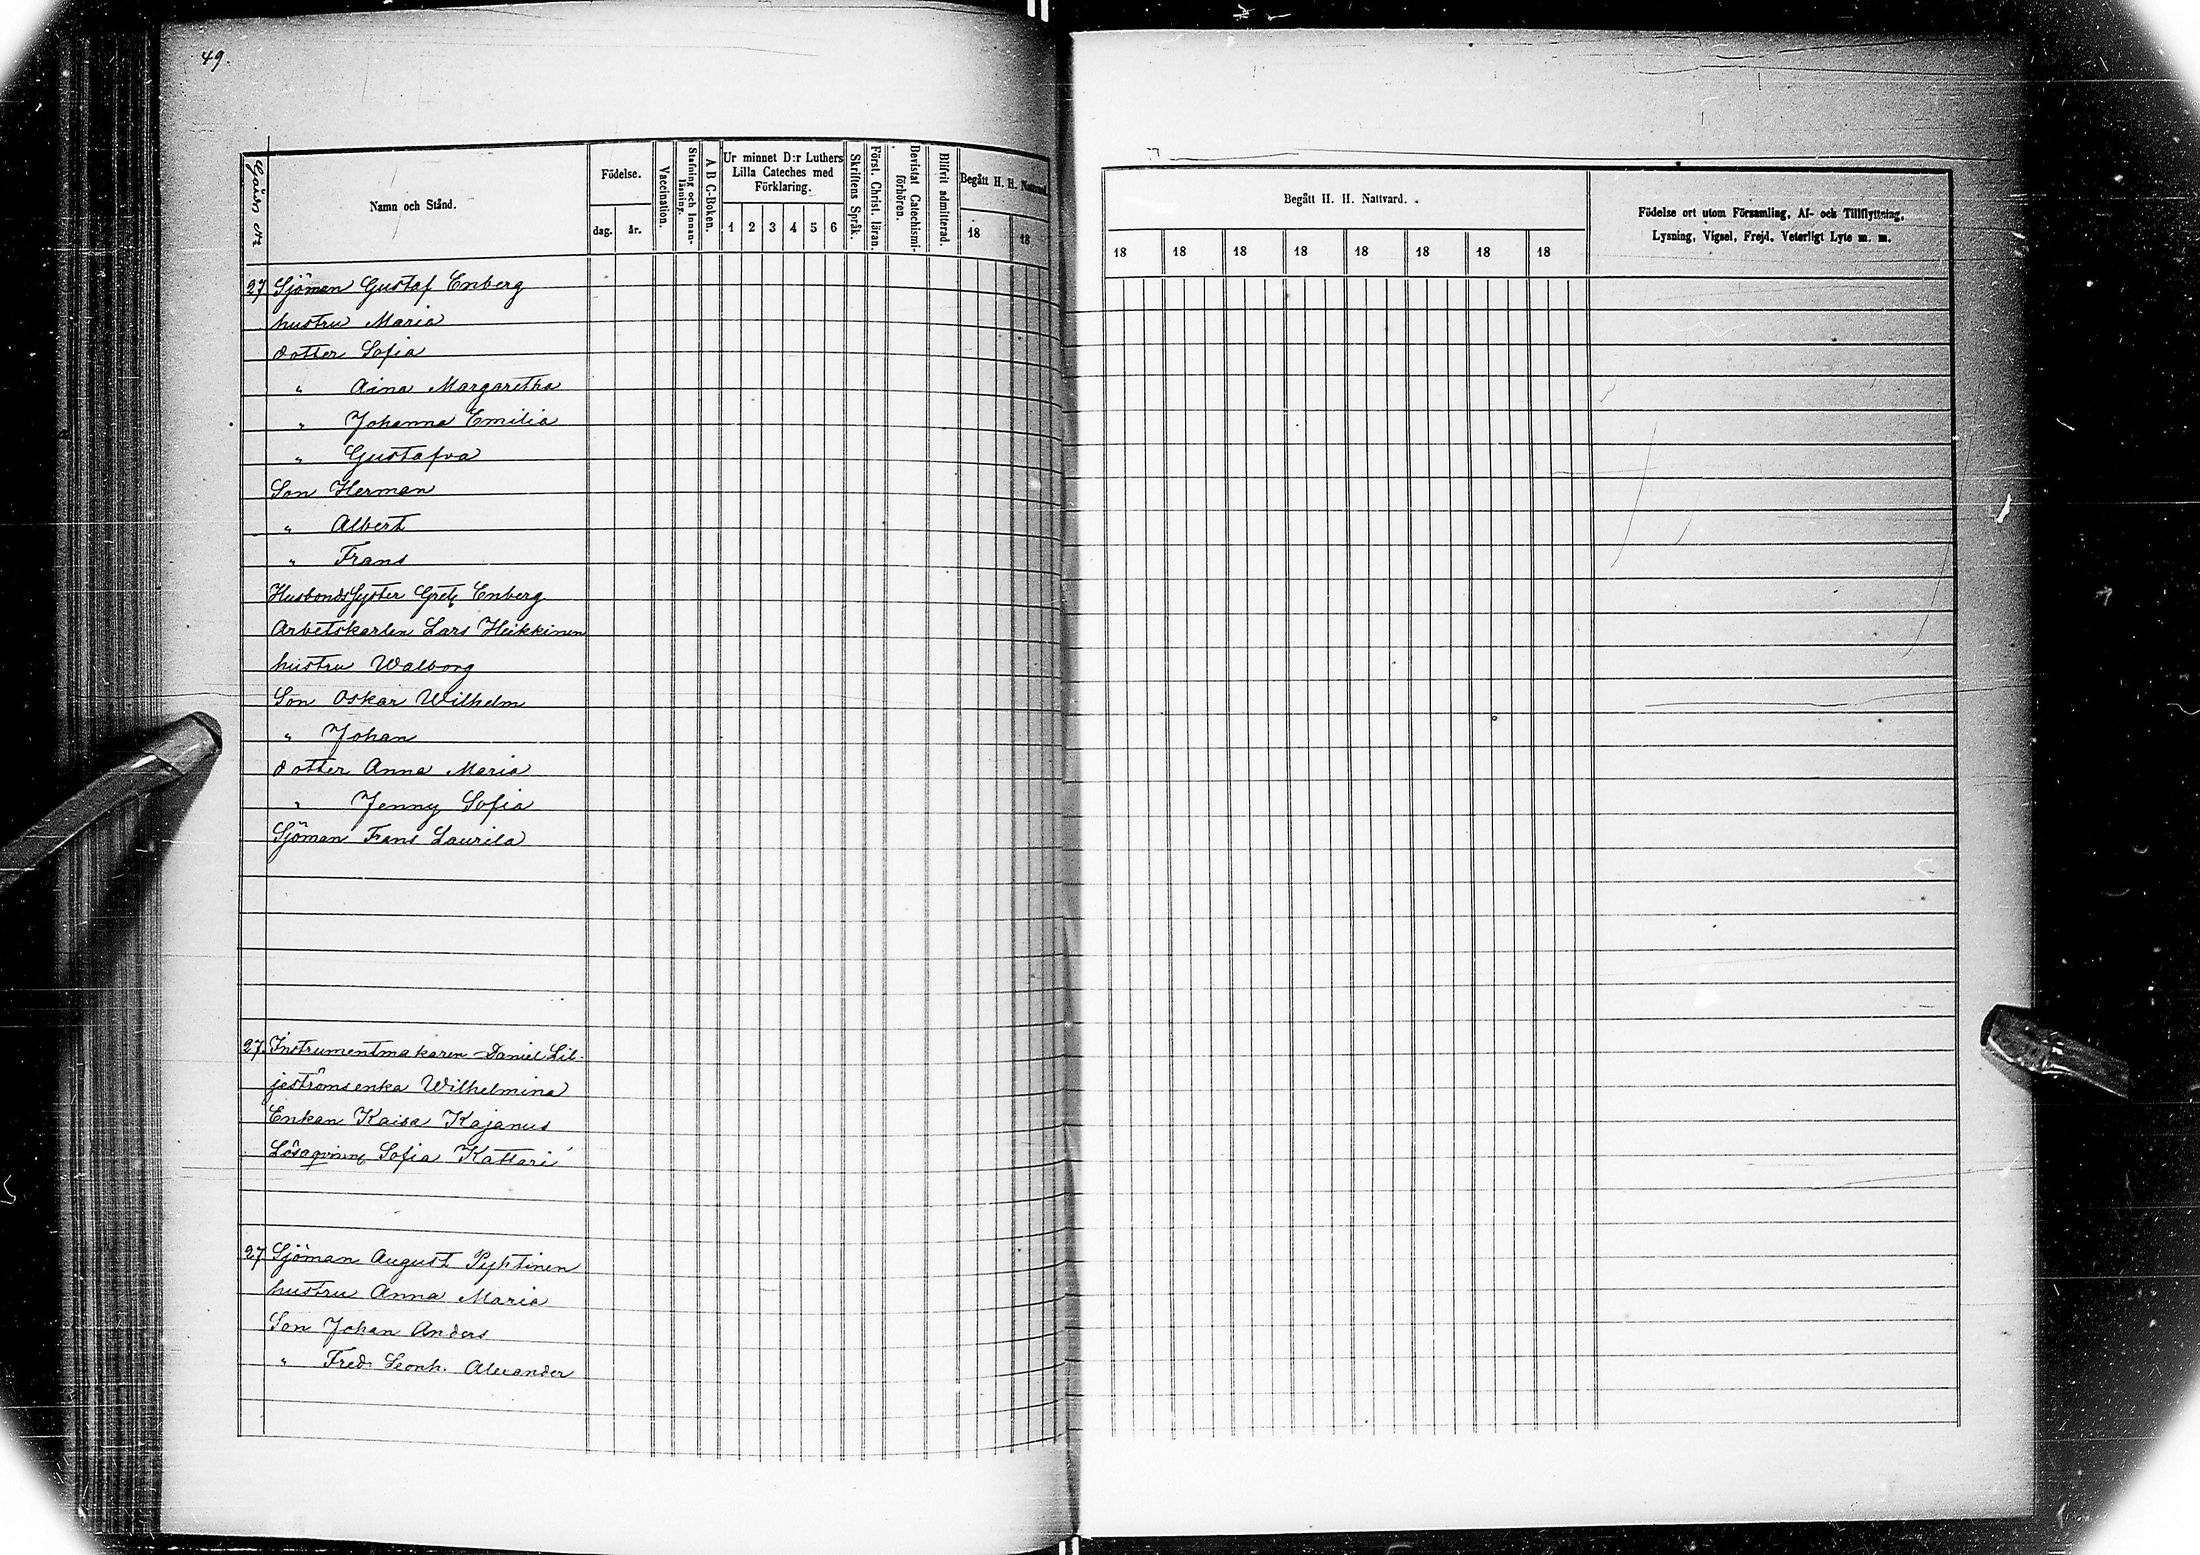 49.
Gårds Nr
Namn och Stånd.
Födelse.
dag. år.
Vaccination.
Stafning och Innan-läsning.
A B C-Boken.
Ur minnet D:r Luthers
Lilla Cateches med
Förklaring.
1 2 3 4 5 6
Skriftens Språk.
Först. Christ. läran.
Bevistat Catechismi-förhören.
Blifvit admitterad.
Begått H. H. Nattvard.
18 18
Begått H. H. Nattvard.
18 18 18 18 18 18 18 18
Födelse ort utom Församling, Af- och Tillflyttning,
Lysning, Vigsel, Frejd, Veterligt Lyte m. m.
27 Sjöman Gustaf Enberg
hustru Maria
dotter Sofia
" Aina Margaretha
" Johanna Emilia
" Gustafva
Son Herman
" Albert
" Frans
Husbonds Syster Greta Enberg
Arbetskarlen Lars Heikkinen
hustru Walborg
Son Oskar Wilhelm
" Johan
dotter Anna Maria
" Jenny Sofia
Sjöman Frans Laurila
27. Instrumentmakaren Daniel Lil-
jeströms enka Wilhelmina
Enkan Kaisa Kajanus
Lösaqvinna Sofia Kattari
27 Sjöman August Pyhtinen
hustru Anna Maria
Son Johan Anders
" Fred. Leonh. Alexander